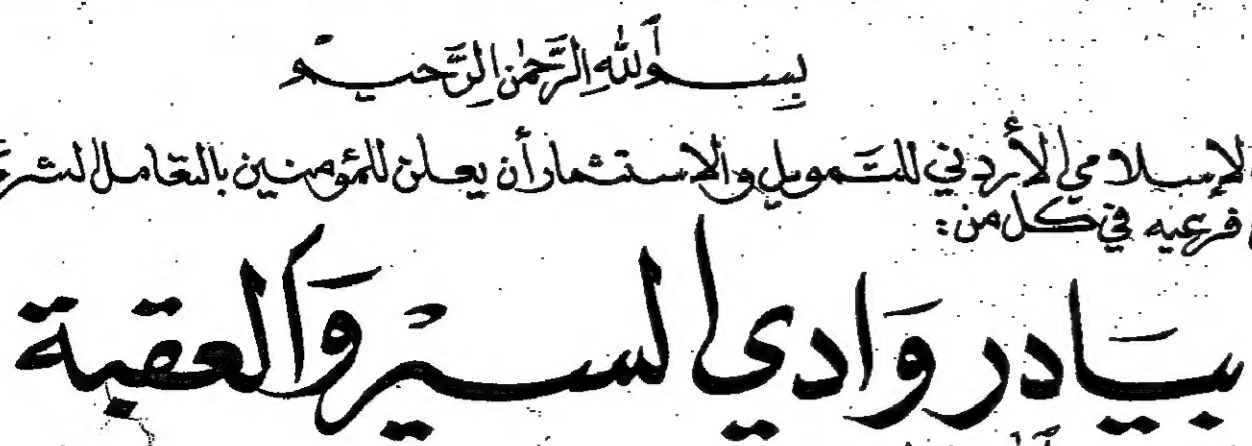 بسم الله الرحمن الرحيم
الإسلامي الأردني للتمويل والاستثمار أن يعلن للمؤمنين بالتعامل
فرعيه في كل من:
بيادر وادي السير والعقبة